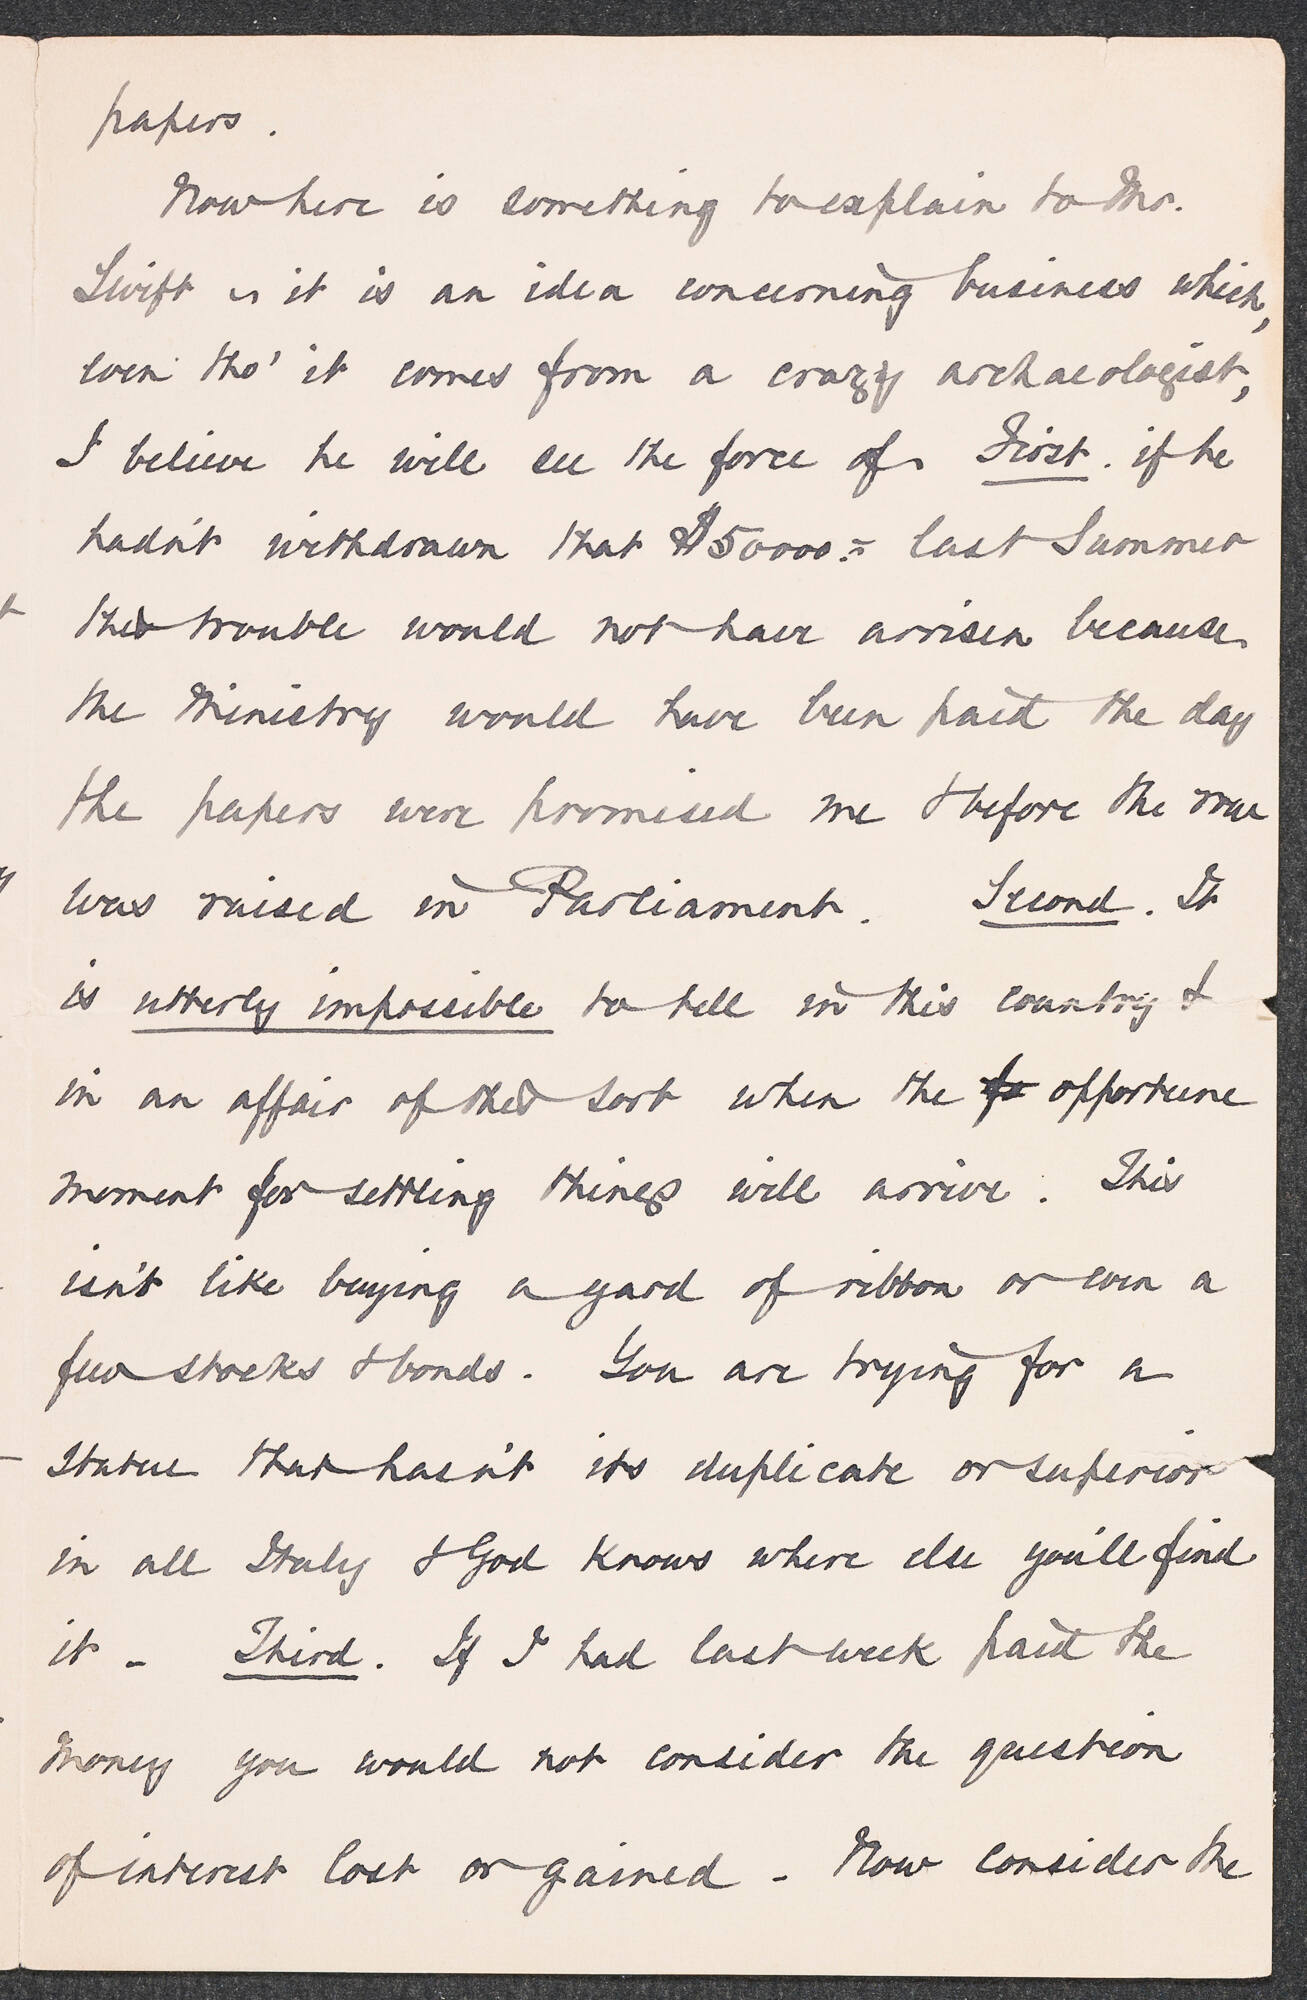 papers.
Now here is something to explain to Mr.
Swift - it is an idea concerning business which,
even tho' it comes from a crazy archaeologist,
I believe he will see the force of. First. if he
hadn't withdrawn that $50000.= last Summer
the trouble would not have arrisen because
the Ministry would have been paid the day
the papers were promised me & before the row
was raised in Parliament. Second. It
is utterly impossible to tell in this country &
in an affair of this sort when the opportune
moment for settling things will arrive. This
isn't like buying a yard of ribbon or even a
few stocks & bonds. You are trying for a
statue that hasn't its duplicate or superior
in all Italy & God knows where else you'll find
it - Third. If I had last week paid the
money you would not consider the question
of interest lost or gained - Now consider the